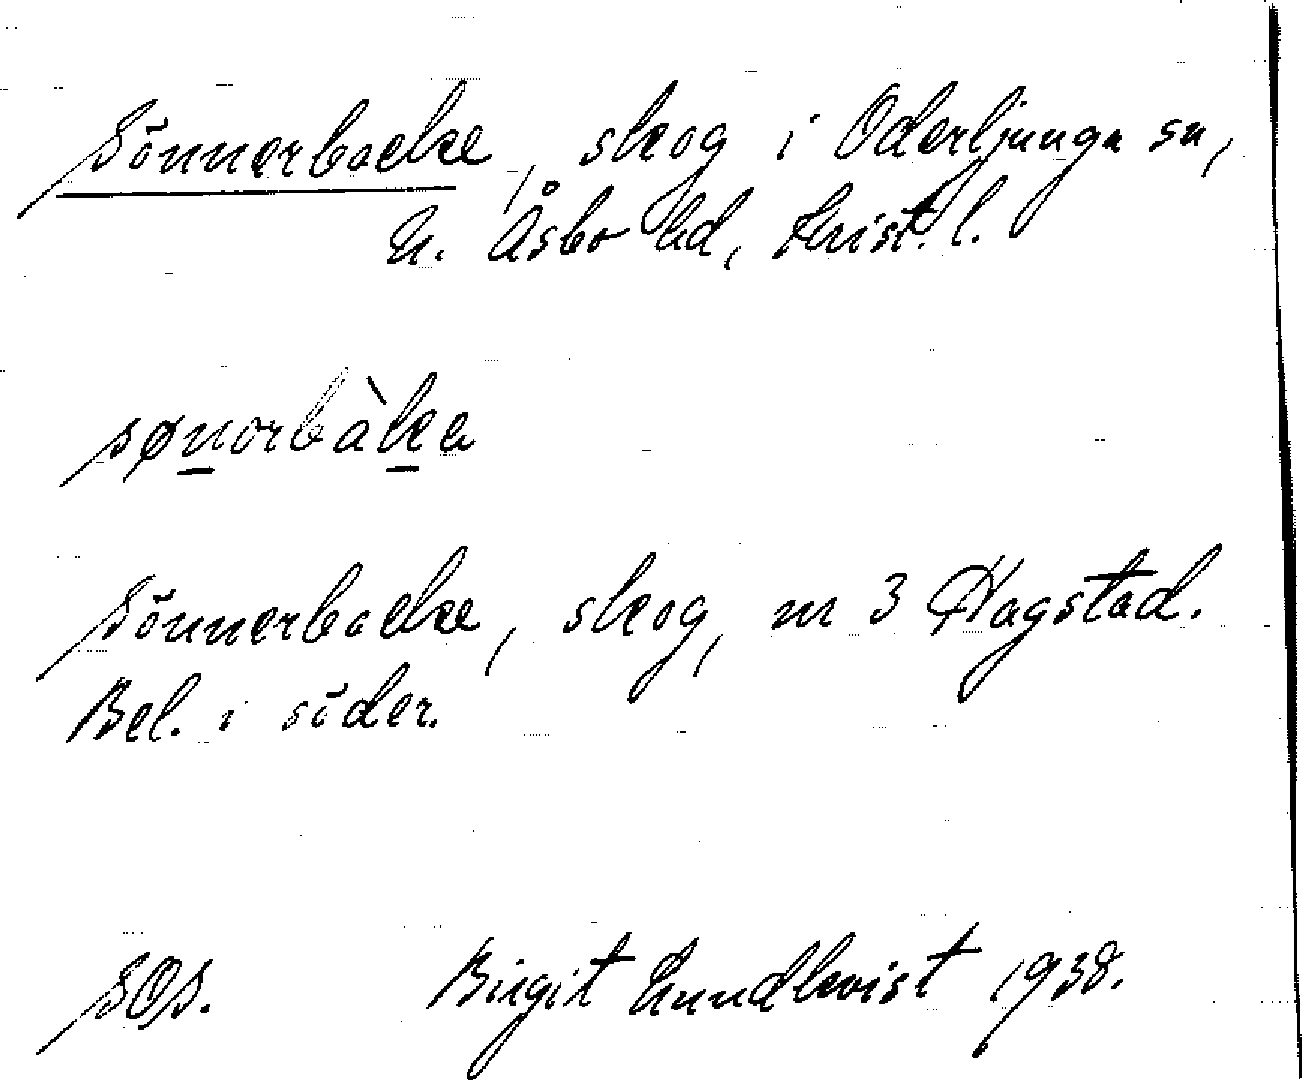 Sönnerbacke, skog i Oderljunga sn,
N. Åsbo hd, Krist. l.
sønorbàka
Sönnerbacke, skog, nr 3 Hagstad.
Bel. i söder.
SOS. Birgit Lundkvist 1938.